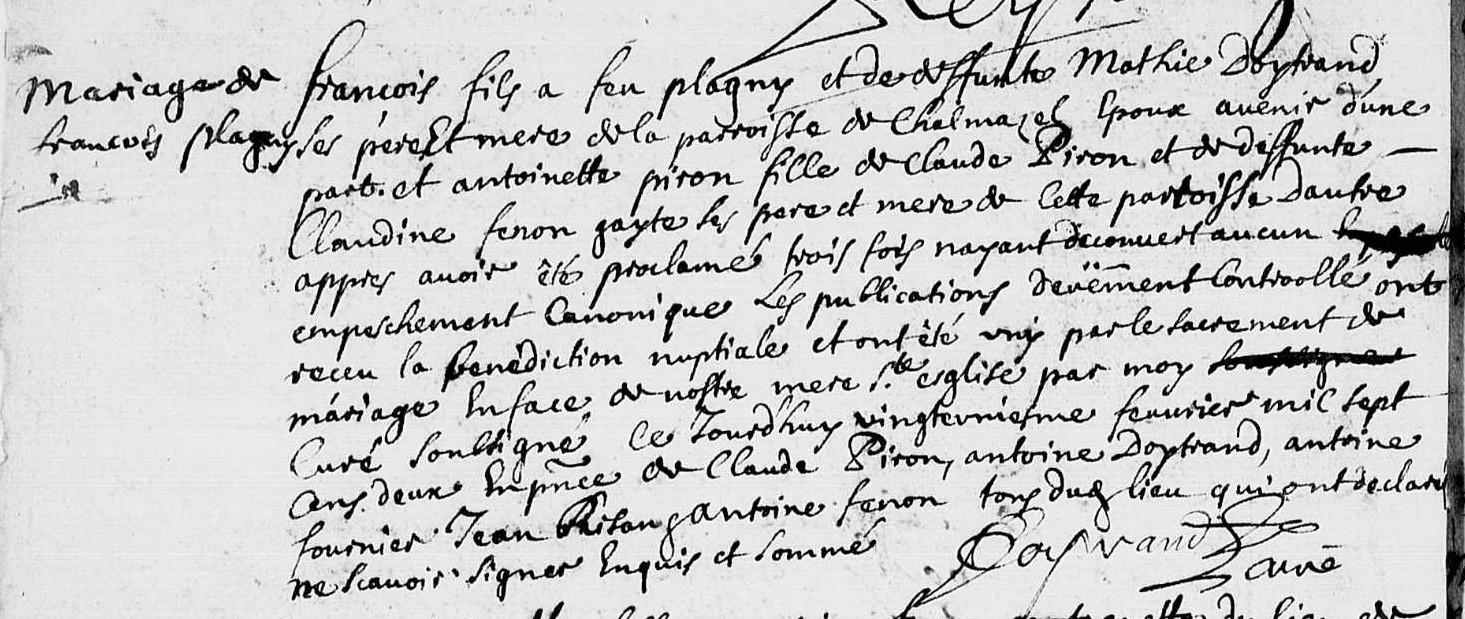 Mariage de
francois plagny
françois fils a feu plagny et de deffunte Mathie Doytrand
ses pere Et mere de la parroisse de Chalmazel Epoux avenir d'une
part. et antoinette piron fille de Claude Piron et de deffunte
Claudine fenon gayte ses pere et mere de Cette parroisse Dautre
appres avoir été proclamé trois fois nayant decouvert aucun
empeschement Canonique Les publications deüement Controollé ont
receu la benédiction nuptiale et ont êté uny par le sacrement de
máriage En face de nostre mere s.te esglise par moy
Curé soubsigné Ce Jourd'huy vingtroniesme feuvrier mil sept
Cens deux En pñce de Claude Piron, antoine Doytrand, antoine
fournier Jean antoine fenon tous dud lieu qui ont declaré
ne scavoir signer Enquis et sommé
Doytrand
curé